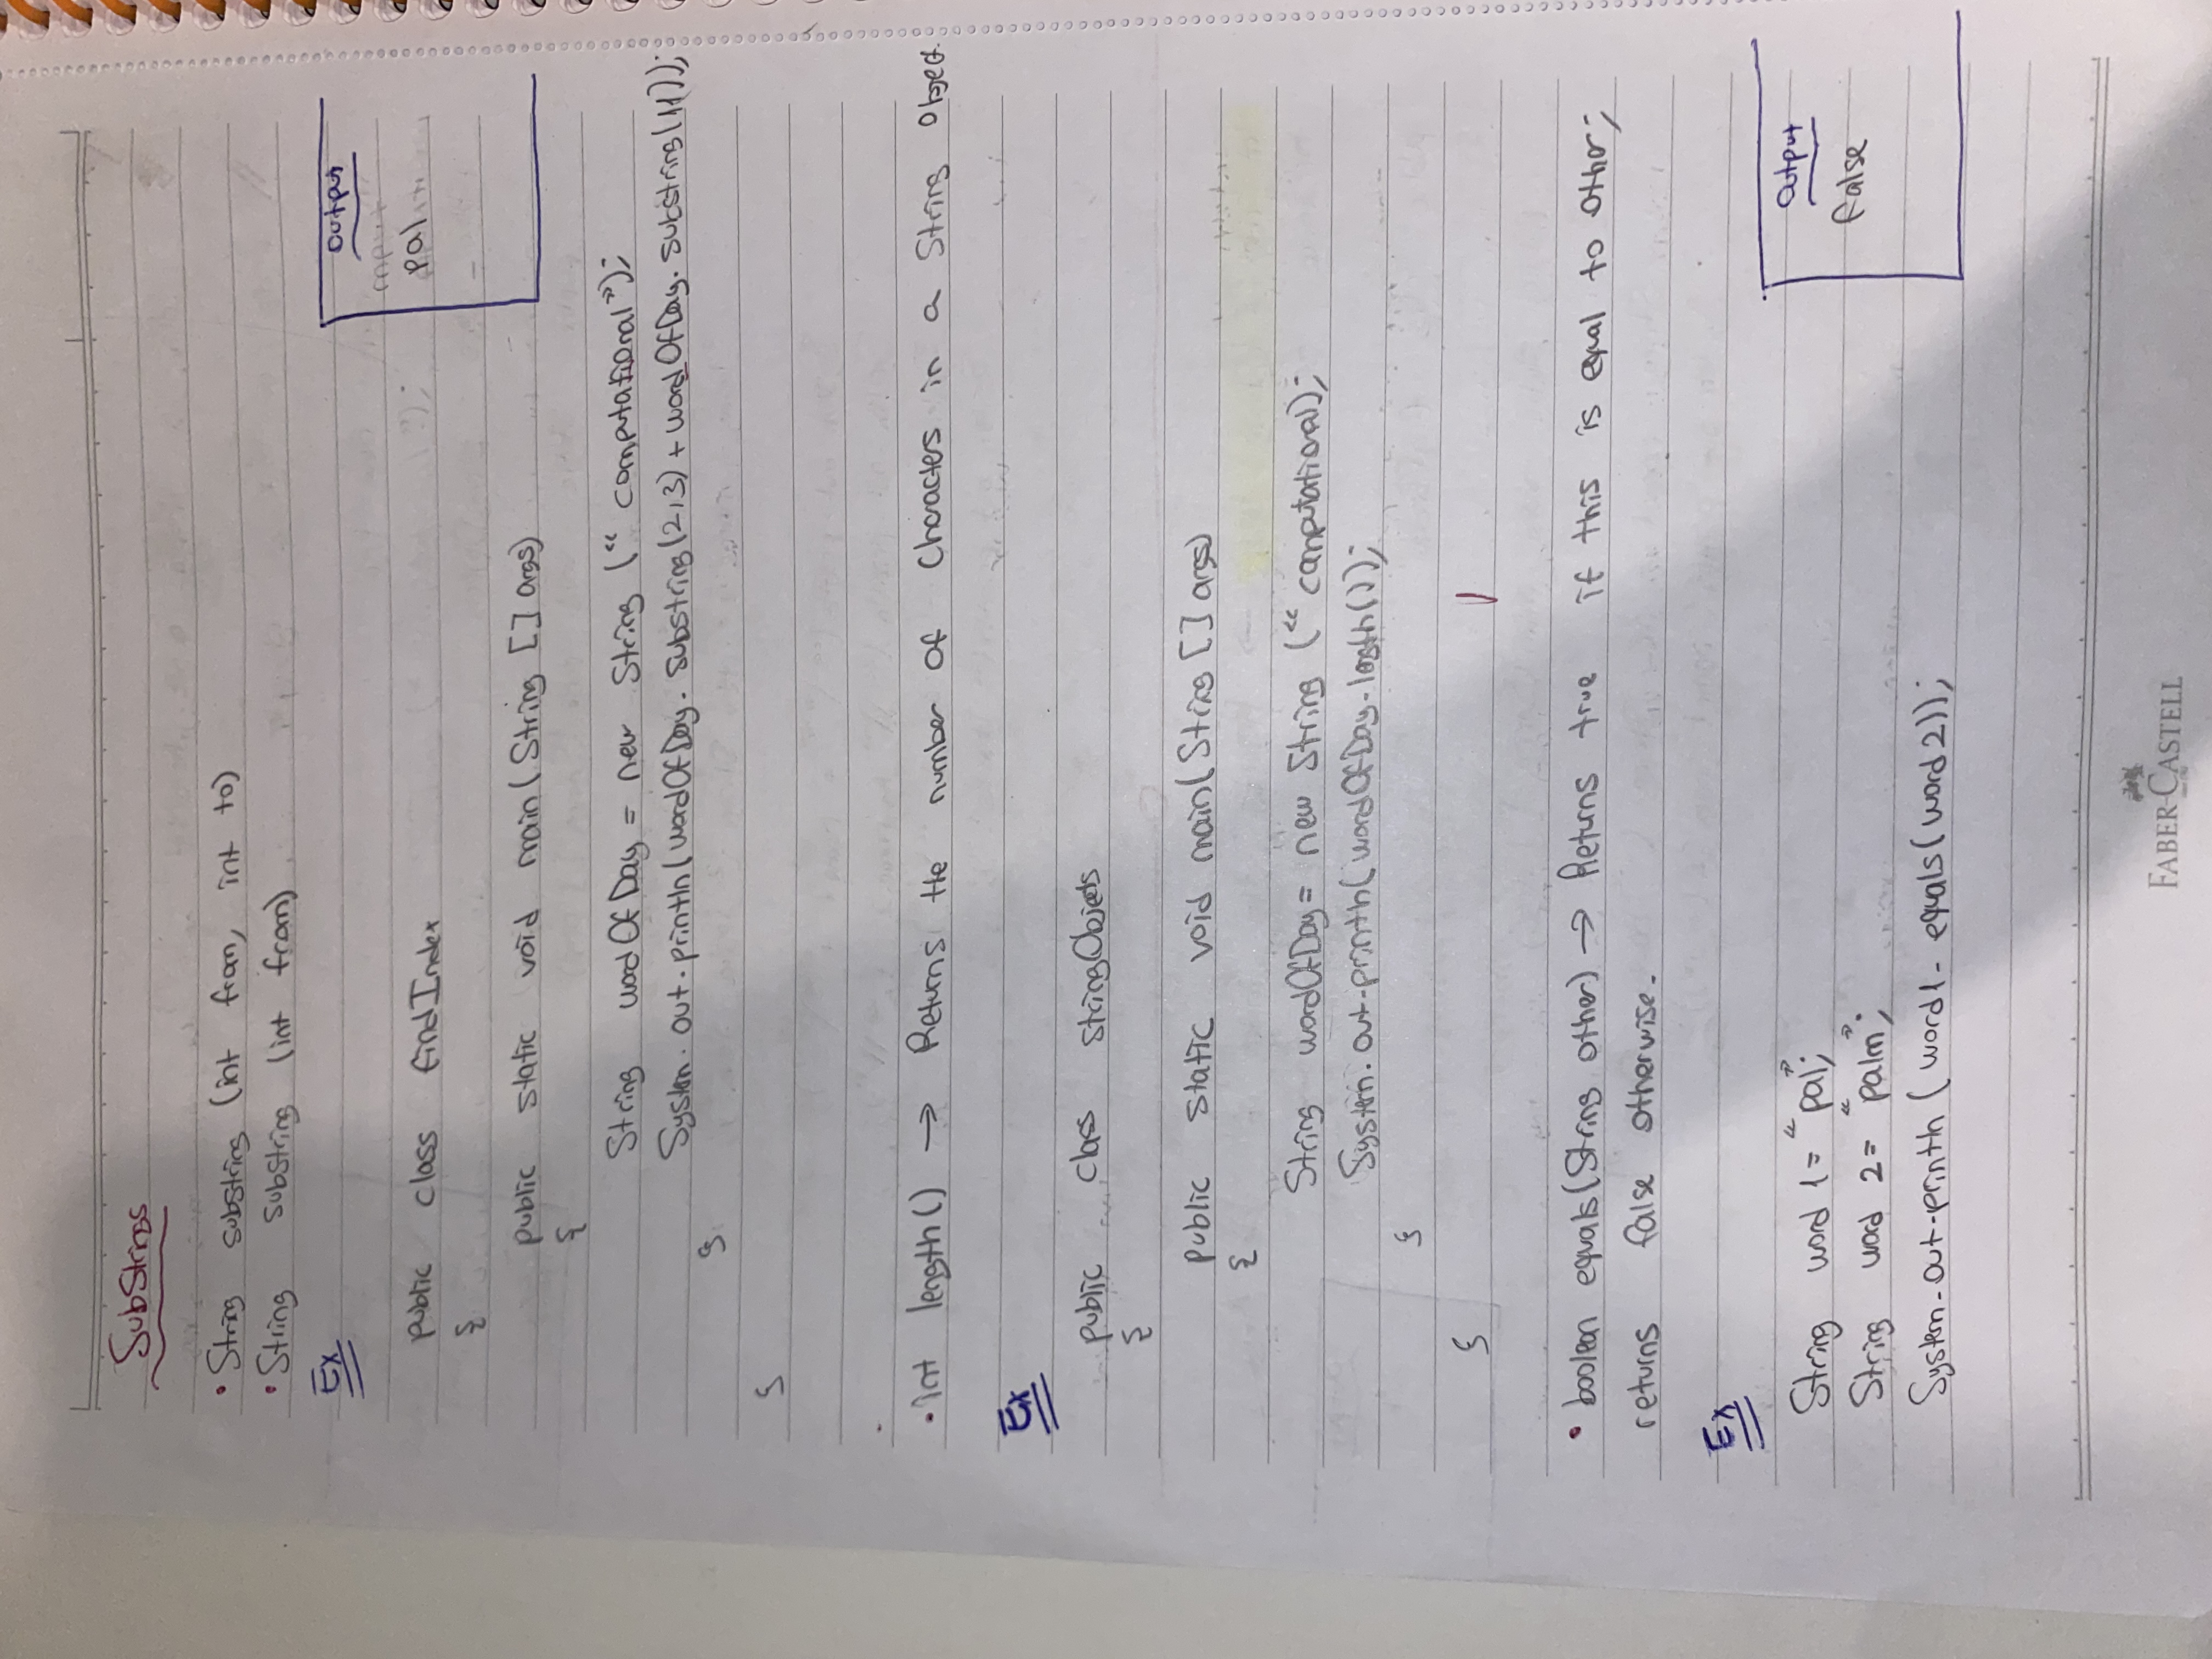 SubStrings
• String substring (int from, int to)
• String substring (int from)
Ex
output
pal
public class findIndex
{
public static void main(String [] args)
{
String wordOfDay = new String (“ computational”);
System.out.println(wordOfDay.substring(2,3) + wordOfDay.substring(11));
}
}
• int length() → Returns the number of characters in a String object.
Ex
public class stringObjects
{
public static void main(String [] args)
{
String wordOfDay = new String (“ computational);
System.out.println(wordOfDay.length());
}
}
• boolean equals(String other) → Returns true if this is equal to other;
returns false otherwise.
Ex
output
false
String word 1 = “pal”;
String word 2 = “palm”;
System.out.println (word1.equals(word2));
FABER-CASTELL